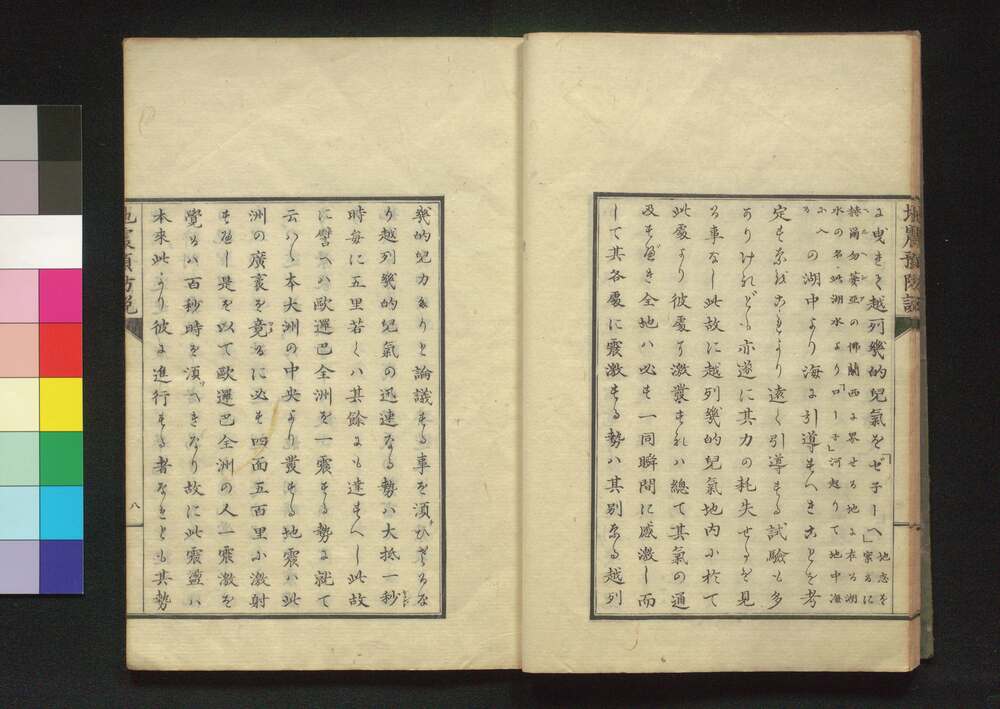 地震預防説
に曳きて越列幾的兒氣を「ゼ子ーヘ」
地志を案るに
赫爾勿萋亞の佛蘭西に界せる地に在る湖
水の名此湖水より「ローン」河起りて地中海
に入る
の湖中より海に引導すへきことを考
定せることより遠く引導する試驗も多
ありけれども亦遂に其力の耗失せるを見
る事なし此故に越列幾的兒氣地内に於て
此處より彼處に激發すれハ總て其氣の通
及すへき全地ハ必す一同瞬間に感激し而
して其各處に震激する勢ハ其別なる越列
幾的兒力なりと論議する事を須ひざるな
り越列幾的兒氣の迅速なる勢ハ大抵一秒
時毎に五里若くハ其餘にも達すへし此故
に譬へハ歐邏巴全洲を一震する勢に就て
云はゝ本大洲の中央より發する地震ハ此
洲の廣袤を竟るに必す四面五百里に激射
すへし是を以て歐邏巴全洲の人一震激を
覺るハ百秒時を須へきなり故に此震盪ハ
本來此より彼に進行する者なれとも其勢
地震預防説
八